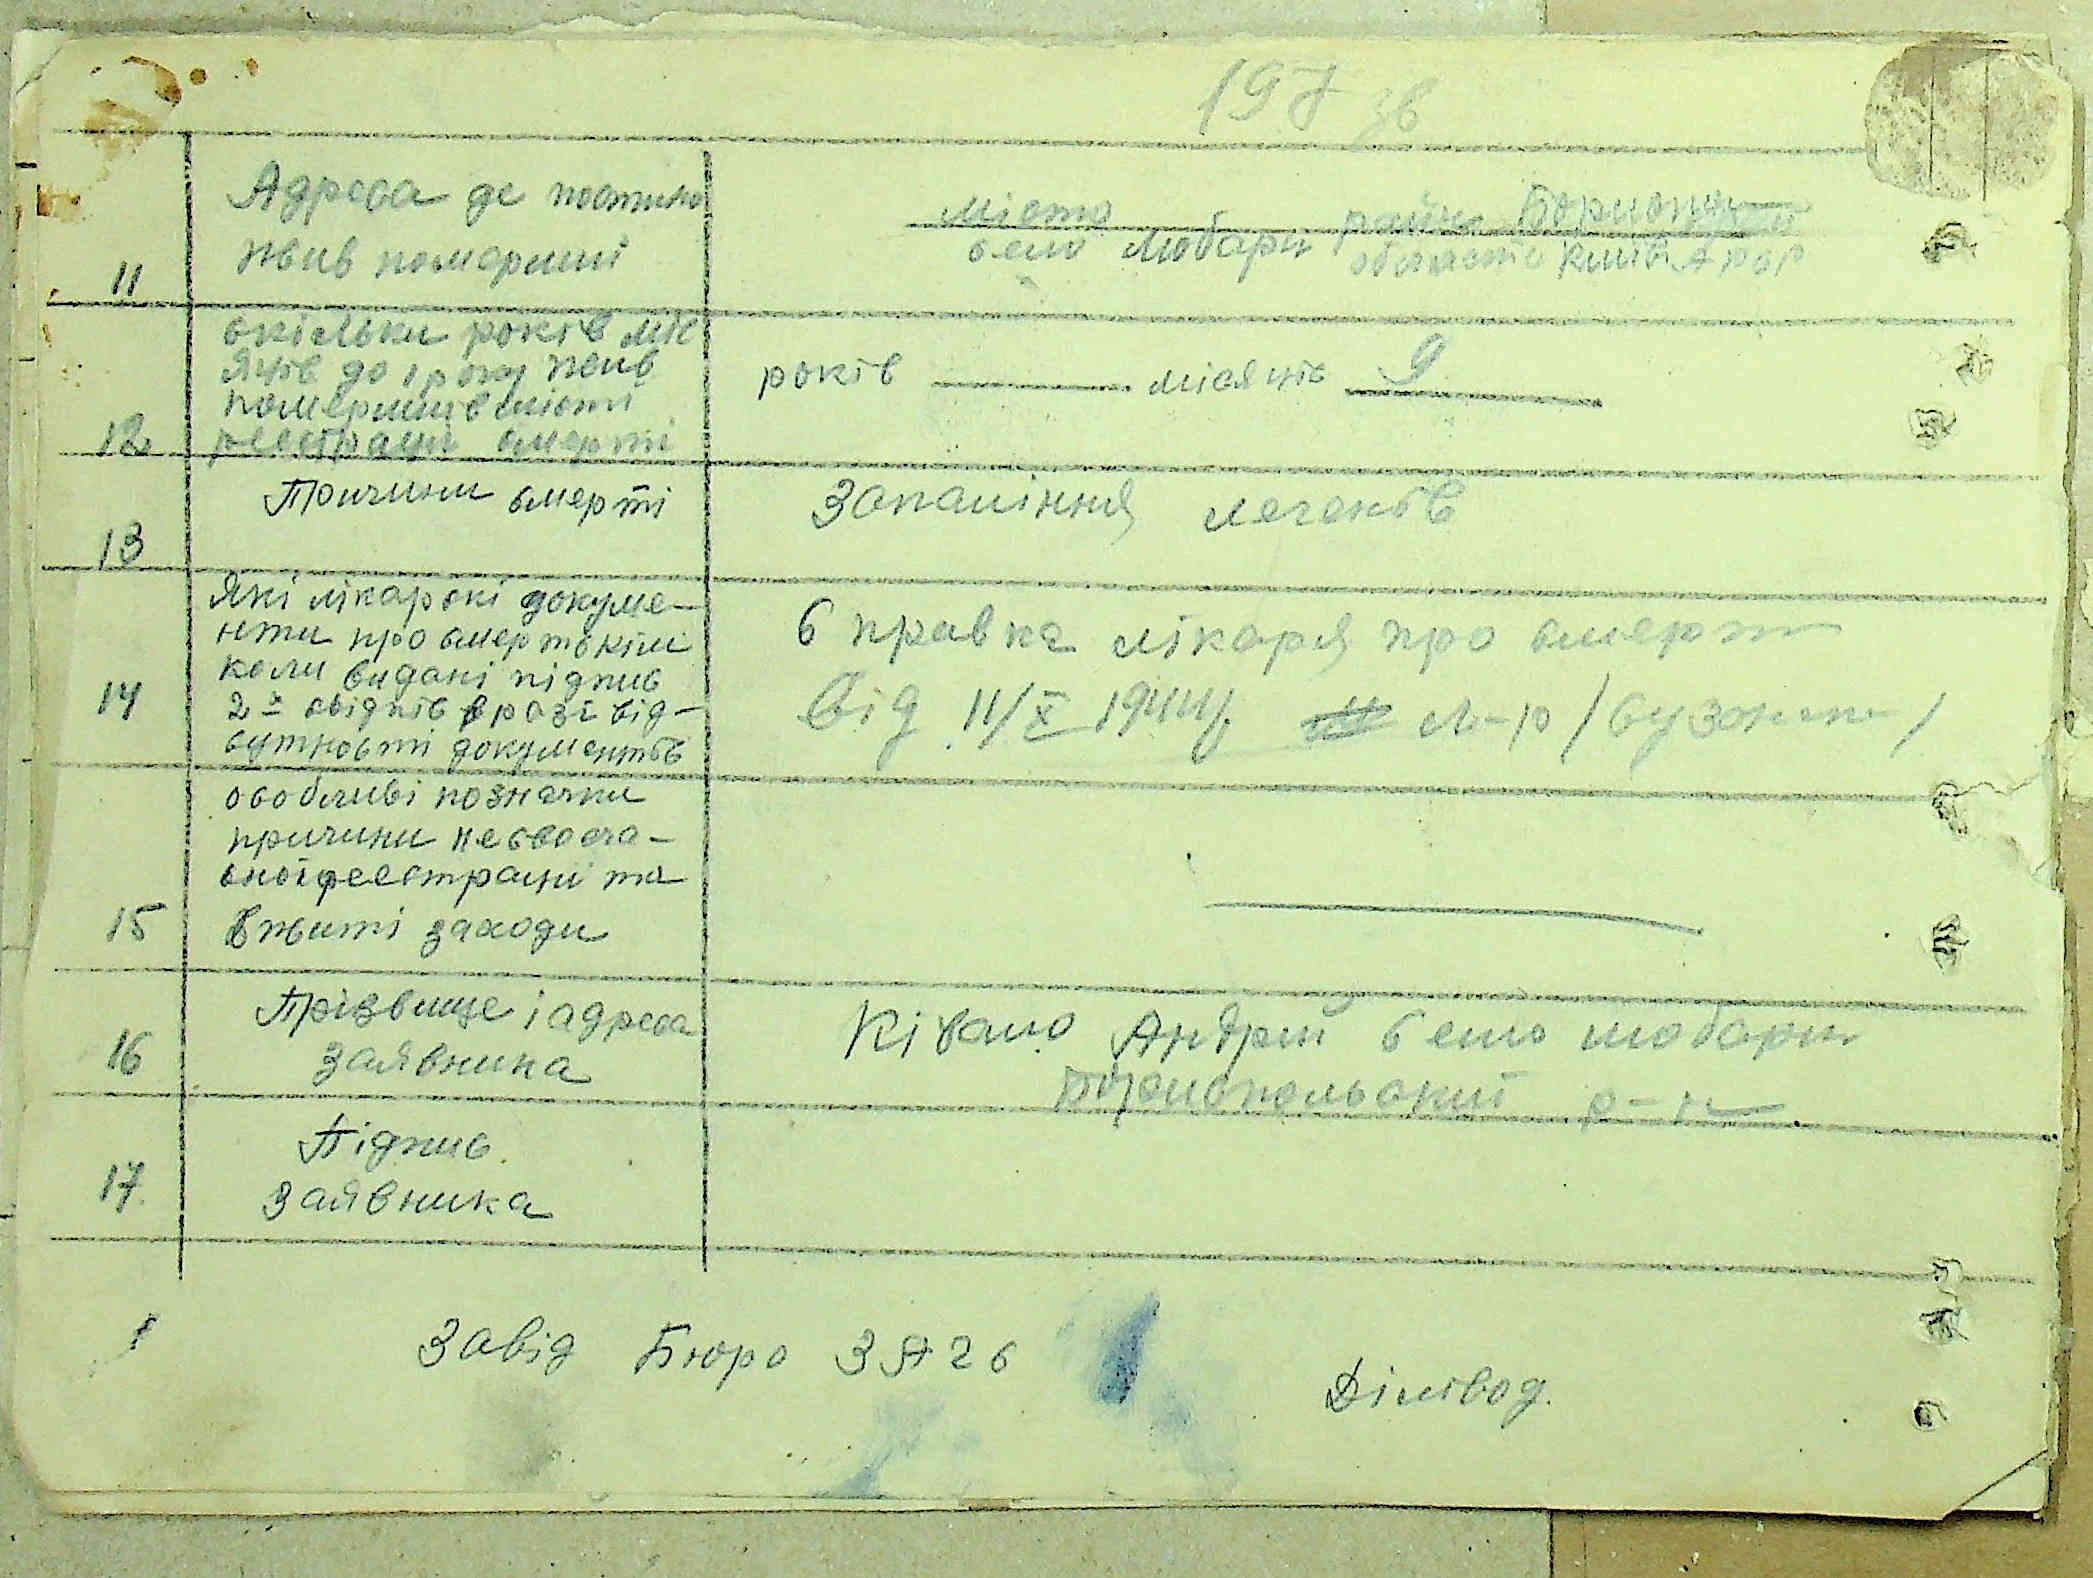 197 зв
11
Адреса де постійно
жив померший
місто район Бориспіль
село Любарці області Київ. А рср
12
скільки років міс
яців до 1 року жив
померший в місті
реєстрації смерті
років місяців 9
13
Причини смерті
Запаління легенів
14
Які лікарскі докуме-
нти про смерть ким
коли видані підпис
2х свідків в разі від-
сутності документів
Справка лікаря про смерть
від 11/X 1944р. л-р /
15
особливі позначки
причини несвоєча-
сної реєстрації та
вжиті заходи
16
Прізвище і адреса
заявника
Андрій село Любарці
р-н
17.
Підпис
заявника
Завід Бюро ЗАГС
Діловод.